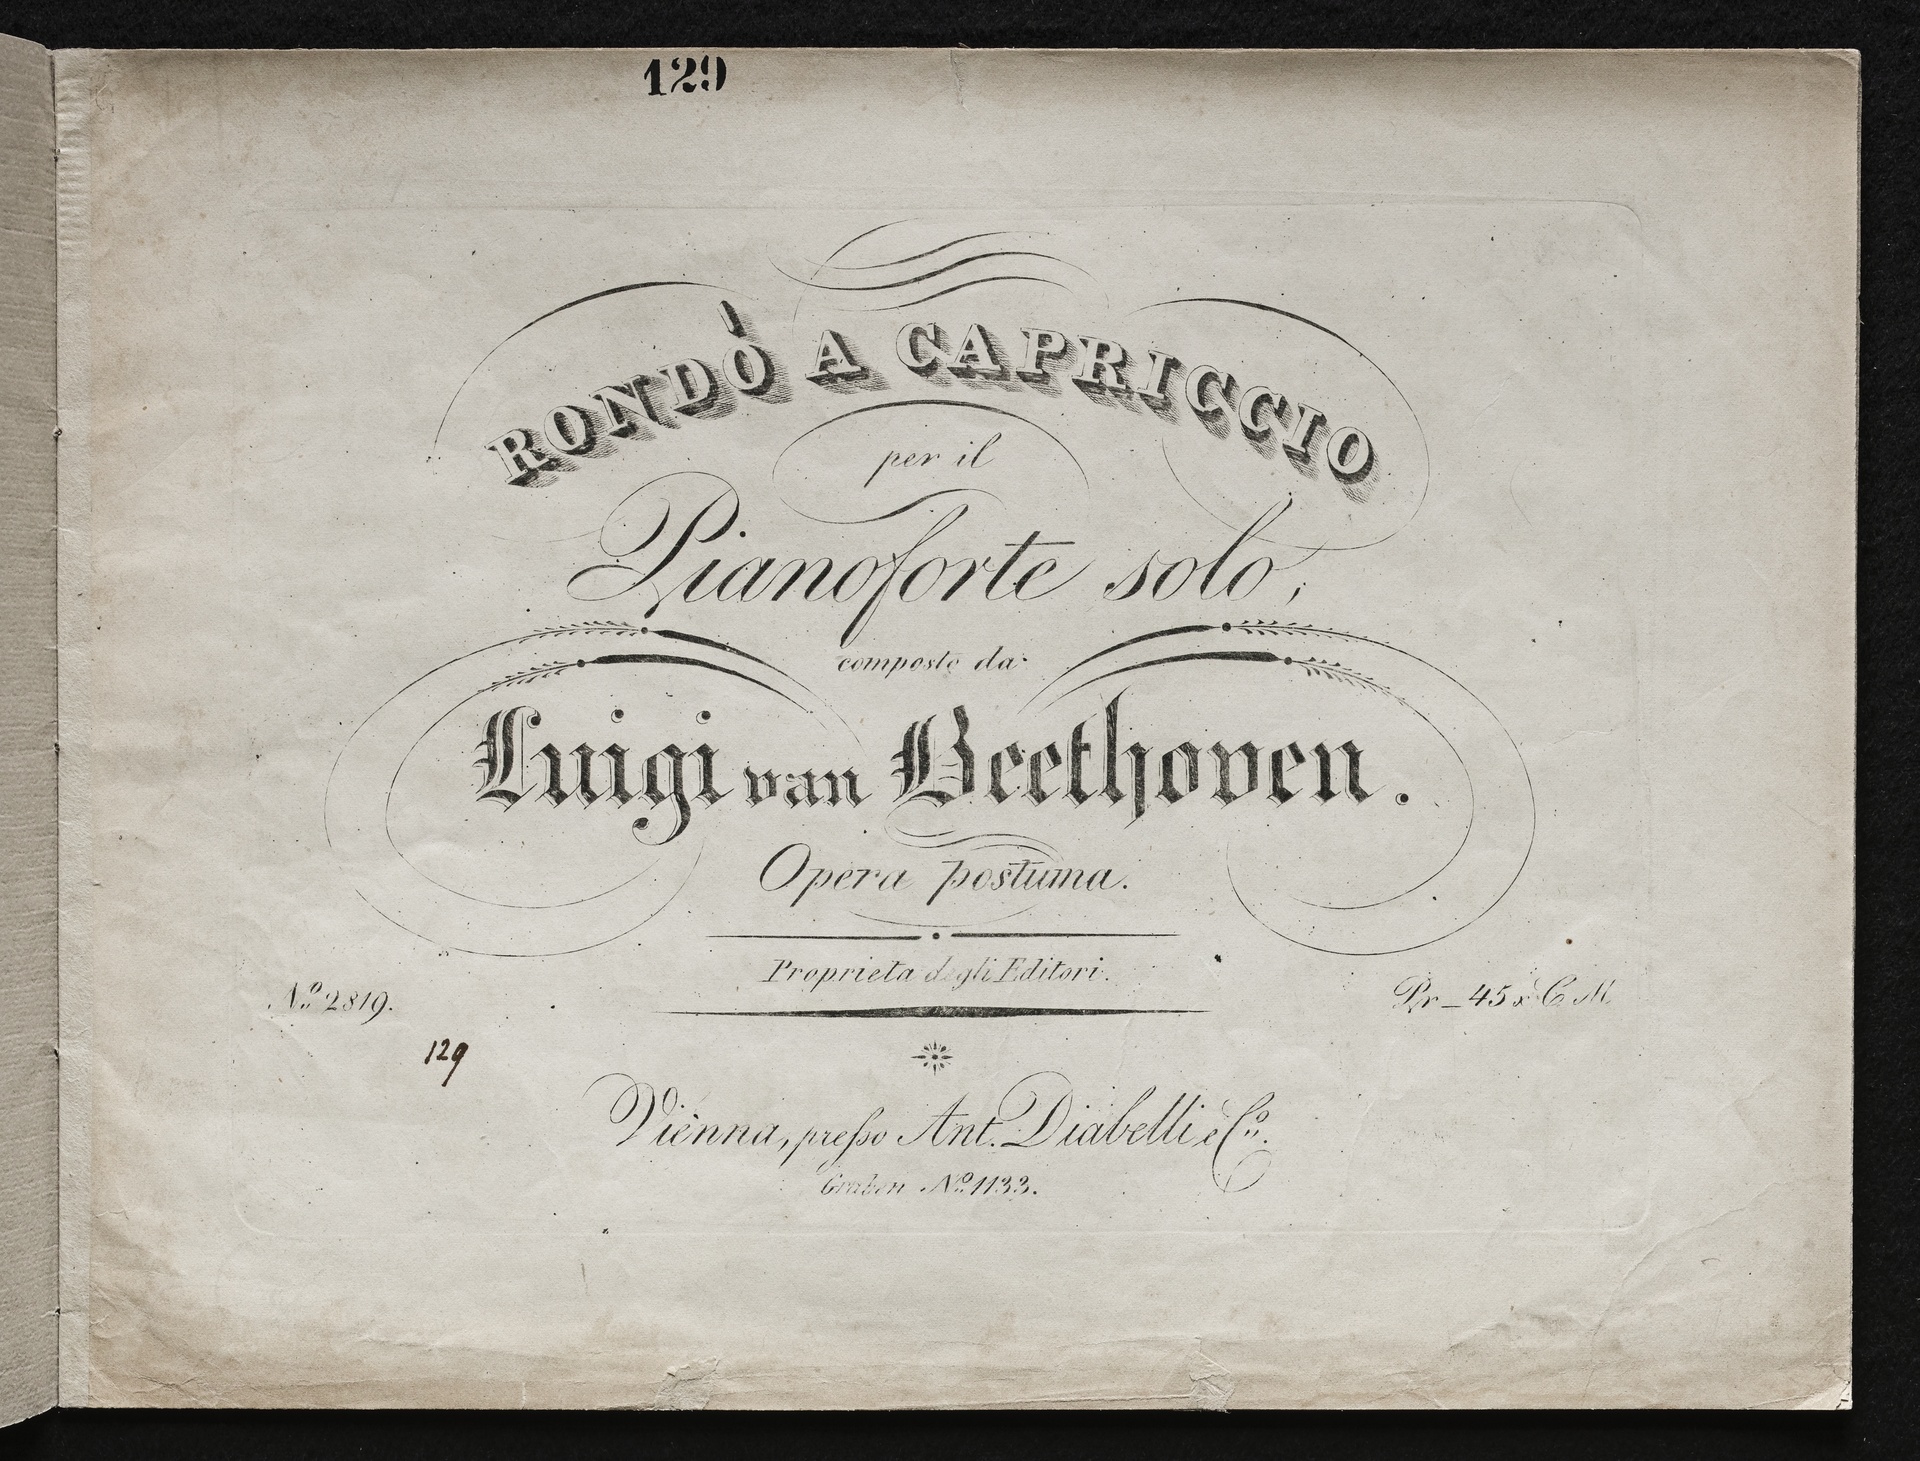 129
RONDÒ A CAPRICCIO
per il
Pianoforte solo,
composto da
Luigi van Beethoven.
Opera postuma.
Proprieta degli Editori.
No. 2819.
Pr _ 45 x C M
129
Vienna, presso Ant. Diabelli e Co.
Graben No. 1133.